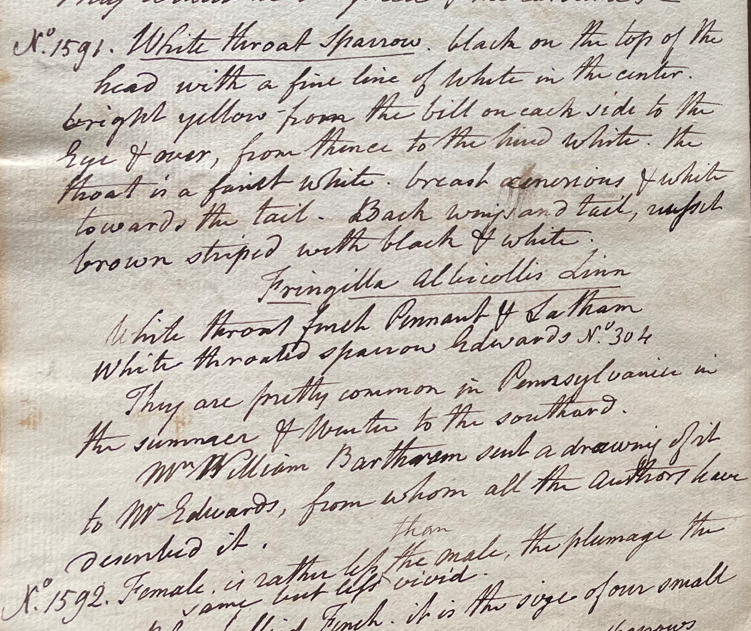 No. 1591. White throat Sparrow. black on the top of the
head with a fine line of white in the center.
bright yellow from the bill on each side to the
Eye & over, from thence to the hind white. the
throat is a faint white. breast cenerious & white
towards the tail. Back wings and tail, russet
brown striped with black & white.
Fringilla Albicollis Linn
White throat finch Pennant & Latham
White throated sparrow Edwards No. 304
They are pretty common in Pennsylvania in
the summer & Winter to the southard.
Mr. William Bartharam sent a drawing of it
to Mr Edwards, from whom all the Authors have
described it.
than
No. 1592. Female. is rather less the male, the plumage the
same but less vivid.
Finch. it is the size of our small